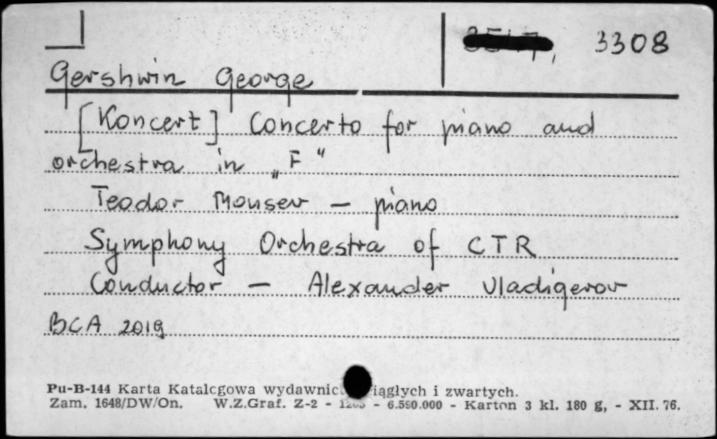 3308
Gershwin George
[Koncert] Concerto for piano and
orchestra in „F"
Teodor Mousev – piano
Symphony Orchestra of CTR
Conductor – Alexander Vladigerov
BCA 2019
Pu-B-144 Karta Katalogowa wydawnic iągłych i zwartych.
Zam. 1648/DW/On. W.Z.Graf. Z-2 - - 6.590.000 - Karton 3 kl. 180 g, - XII. 76.